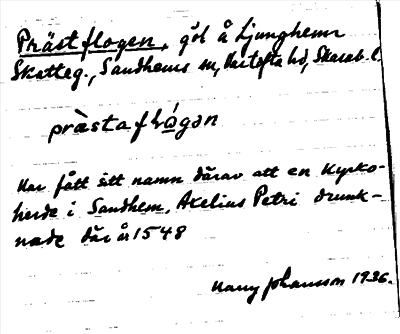 Prästflogen, göl å Ljunghems
Skatteg., Sandhems sn, Vartofta hd, Skarab. l.
pràstaflɷ́gən
Har fått sitt namn därav att en kyrko-
herde i Sandhem, Axelius Petri drunk-
nade där år 1548
Nanny Johansson 1936.